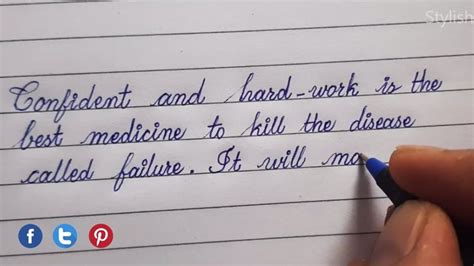 Stylish
Confident and hard-work is the
best medicine to kill the disease
called failure. It will ma